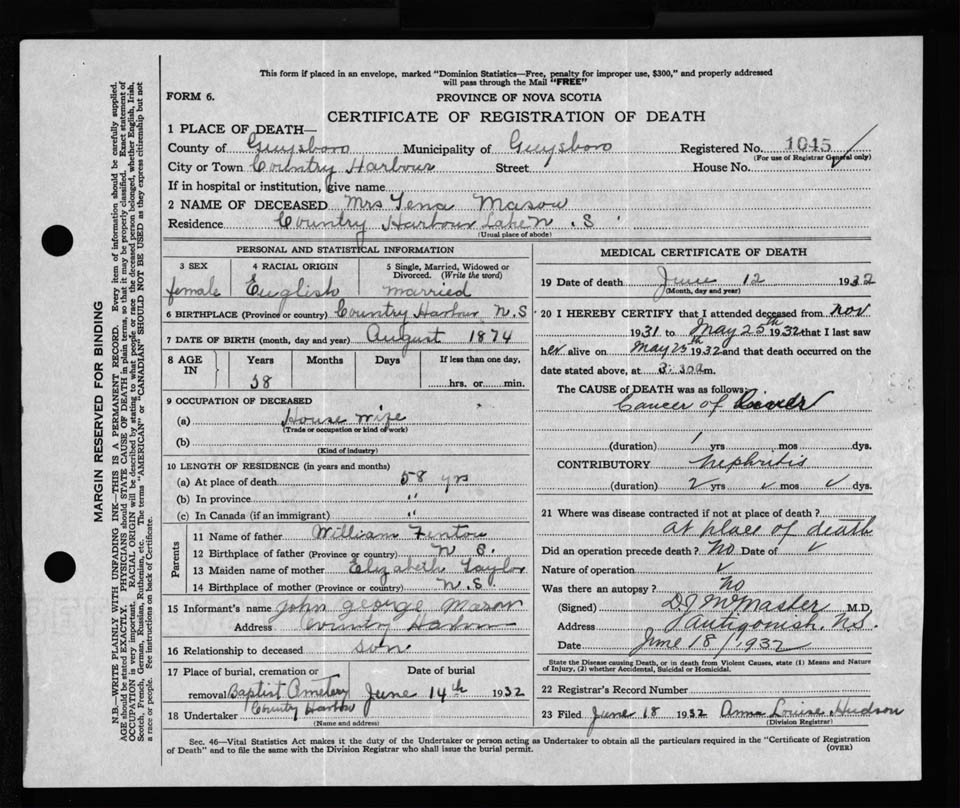 This form if placed in an envelope, marked "Dominion Statistics—Free, penalty for improper use, $300," and properly addressed
will pass through the Mail "FREE"
FORM 6.
PROVINCE OF NOVA SCOTIA
CERTIFICATE OF REGISTRATION OF DEATH
1 PLACE OF DEATH—
County of Guysboro Municipality of Guysboro Registered No. 1045
(For use of Registrar General only)
City or Town Country Harbour Street House No.
If in hospital or institution, give name
2 NAME OF DECEASED Mrs Tena Mason
Residence Country Harbour Lake N. S
(Usual place of abode)
PERSONAL AND STATISTICAL INFORMATION
3 SEX 4 RACIAL ORIGIN 5 Single, Married, Widowed or Divorced. (Write the word)
female English married
6 BIRTHPLACE (Province or country) Country Harbour N.S
7 DATE OF BIRTH (month, day and year) August 1874
8 AGE IN Years Months Days If less than one day,
58 hrs. or min.
9 OCCUPATION OF DECEASED
(a) House wife
(Trade or occupation or kind of work)
(b)
(Kind of industry)
10 LENGTH OF RESIDENCE (in years and months)
(a) At place of death 58 yrs
(b) In province "
(c) In Canada (if an immigrant) "
Parents
11 Name of father William Fenton
12 Birthplace of father (Province or country) N S.
13 Maiden name of mother Elizabeth Taylor
14 Birthplace of mother (Province or country) N.S
15 Informant's name John George Mason
Address Country Harbour
16 Relationship to deceased son
17 Place of burial, cremation or Date of burial
removal Baptist Cemetery June 14th 1932
Country Harbour
18 Undertaker
(Name and address)
MEDICAL CERTIFICATE OF DEATH
19 Date of death June 12 1932
(Month, day and year)
20 I HEREBY CERTIFY that I attended deceased from Nov
1931 to May 25th 1932 that I last saw
her alive on May 25th 1932 and that death occurred on
date stated above, at 3:30 a m.
The CAUSE of DEATH was as follows:
Cancer of Liver
(duration) 1 yrs mos dys.
CONTRIBUTORY Nephritis
(duration) 2 yrs mos dys.
21 Where was disease contracted if not at place of death?
at place of death
Did an operation precede death? No Date of
Nature of operation
Was there an autopsy? No
(Signed) D.J. McMaster M.D.
Address Antigonish, N.S.
Date June 18/1932
State the Disease causing Death, or in death from Violent Causes, state (1) Means and Nature
of Injury, (2) whether Accidental, Suicidal or Homicidal.
22 Registrar's Record Number
23 Filed June 18 1932 Anna Louise Hudson
(Division Registrar)
Sec. 46—Vital Statistics Act makes it the duty of the Undertaker or person acting as Undertaker to obtain all the particulars required in the "Certificate of Registration
of Death" and to file the same with the Division Registrar who shall issue the burial permit.
(OVER)
MARGIN RESERVED FOR BINDING
N.B.—WRITE PLAINLY WITH UNFADING INK—THIS IS A PERMANENT RECORD. Every item of information should be carefully supplied.
AGE should be stated EXACTLY. PHYSICIANS should STATE CAUSE OF DEATH in plain terms, so that it may be properly classified. Exact statement of
OCCUPATION is very important. RACIAL ORIGIN will be described by stating to what people or race the deceased person belonged, whether English, Irish,
Scotch, French, German, Russian, Ruthenian, etc. The terms "AMERICAN" or "CANADIAN" SHOULD NOT BE USED as they express citizenship but not
a race or people. See instructions on back of Certificate.